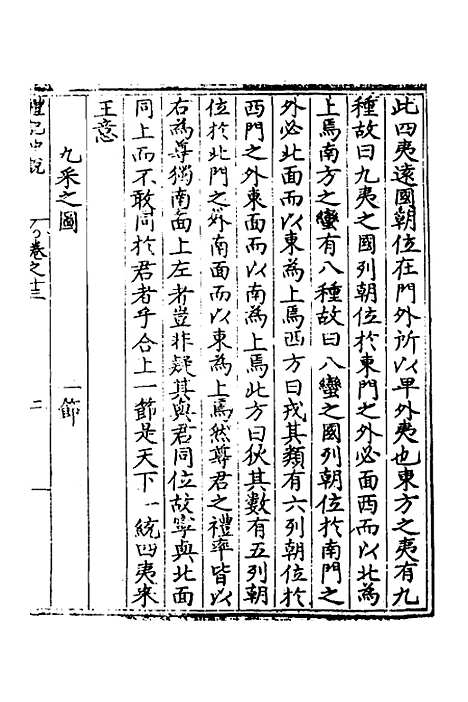 此四夷遠國朝位在門外所以卑外夷也東方之夷有九
種故曰九夷之國列朝位於東門之外必面西而以北為
上焉南方之蠻有八種故曰八蠻之國列朝位於南門之
外必北面而以東為上焉西方曰戎其類有六列朝位於
西門之外東面而以南為上焉北方曰狄其數有五列朝
位於北門之外南面而以東為上焉然尊君之禮率皆以
右為尊獨南面上左者豈非疑其與君同位故寧與北面
同上而不敢同於君者乎合上一節是天下一統四夷來
王意
九采之圖 一節
禮記中說 卷之十三 二